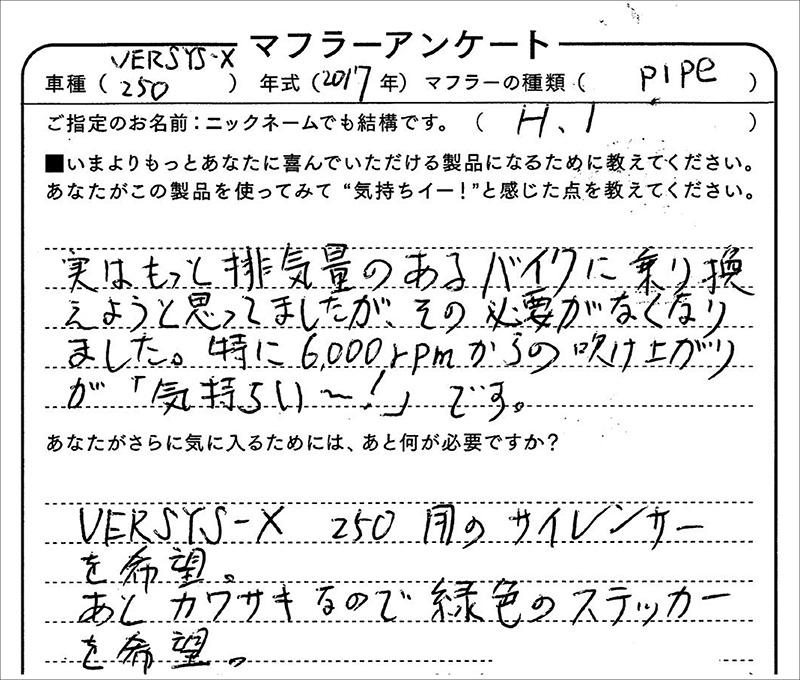 マフラーアンケート
車種（VERSYS-X 250）年式（2017年）マフラーの種類（pipe）
ご指定のお名前：ニックネームでも結構です。（H.I）
■いまよりもっとあなたに喜んでいただける製品になるために教えてください。
あなたがこの製品を使ってみて“気持ちイー！”と感じた点を教えてください。
実はもっと排気量のあるバイクに乗り換
えようと思ってましたが、その必要がなくなり
ました。特に6,000rpmからの吹け上がり
が「気持ちい〜！」です。
あなたがさらに気に入るためには、あと何が必要ですか？
VERSYS-X 250用のサイレンサー
を希望。
あとカワサキなので緑色のステッカー
を希望。